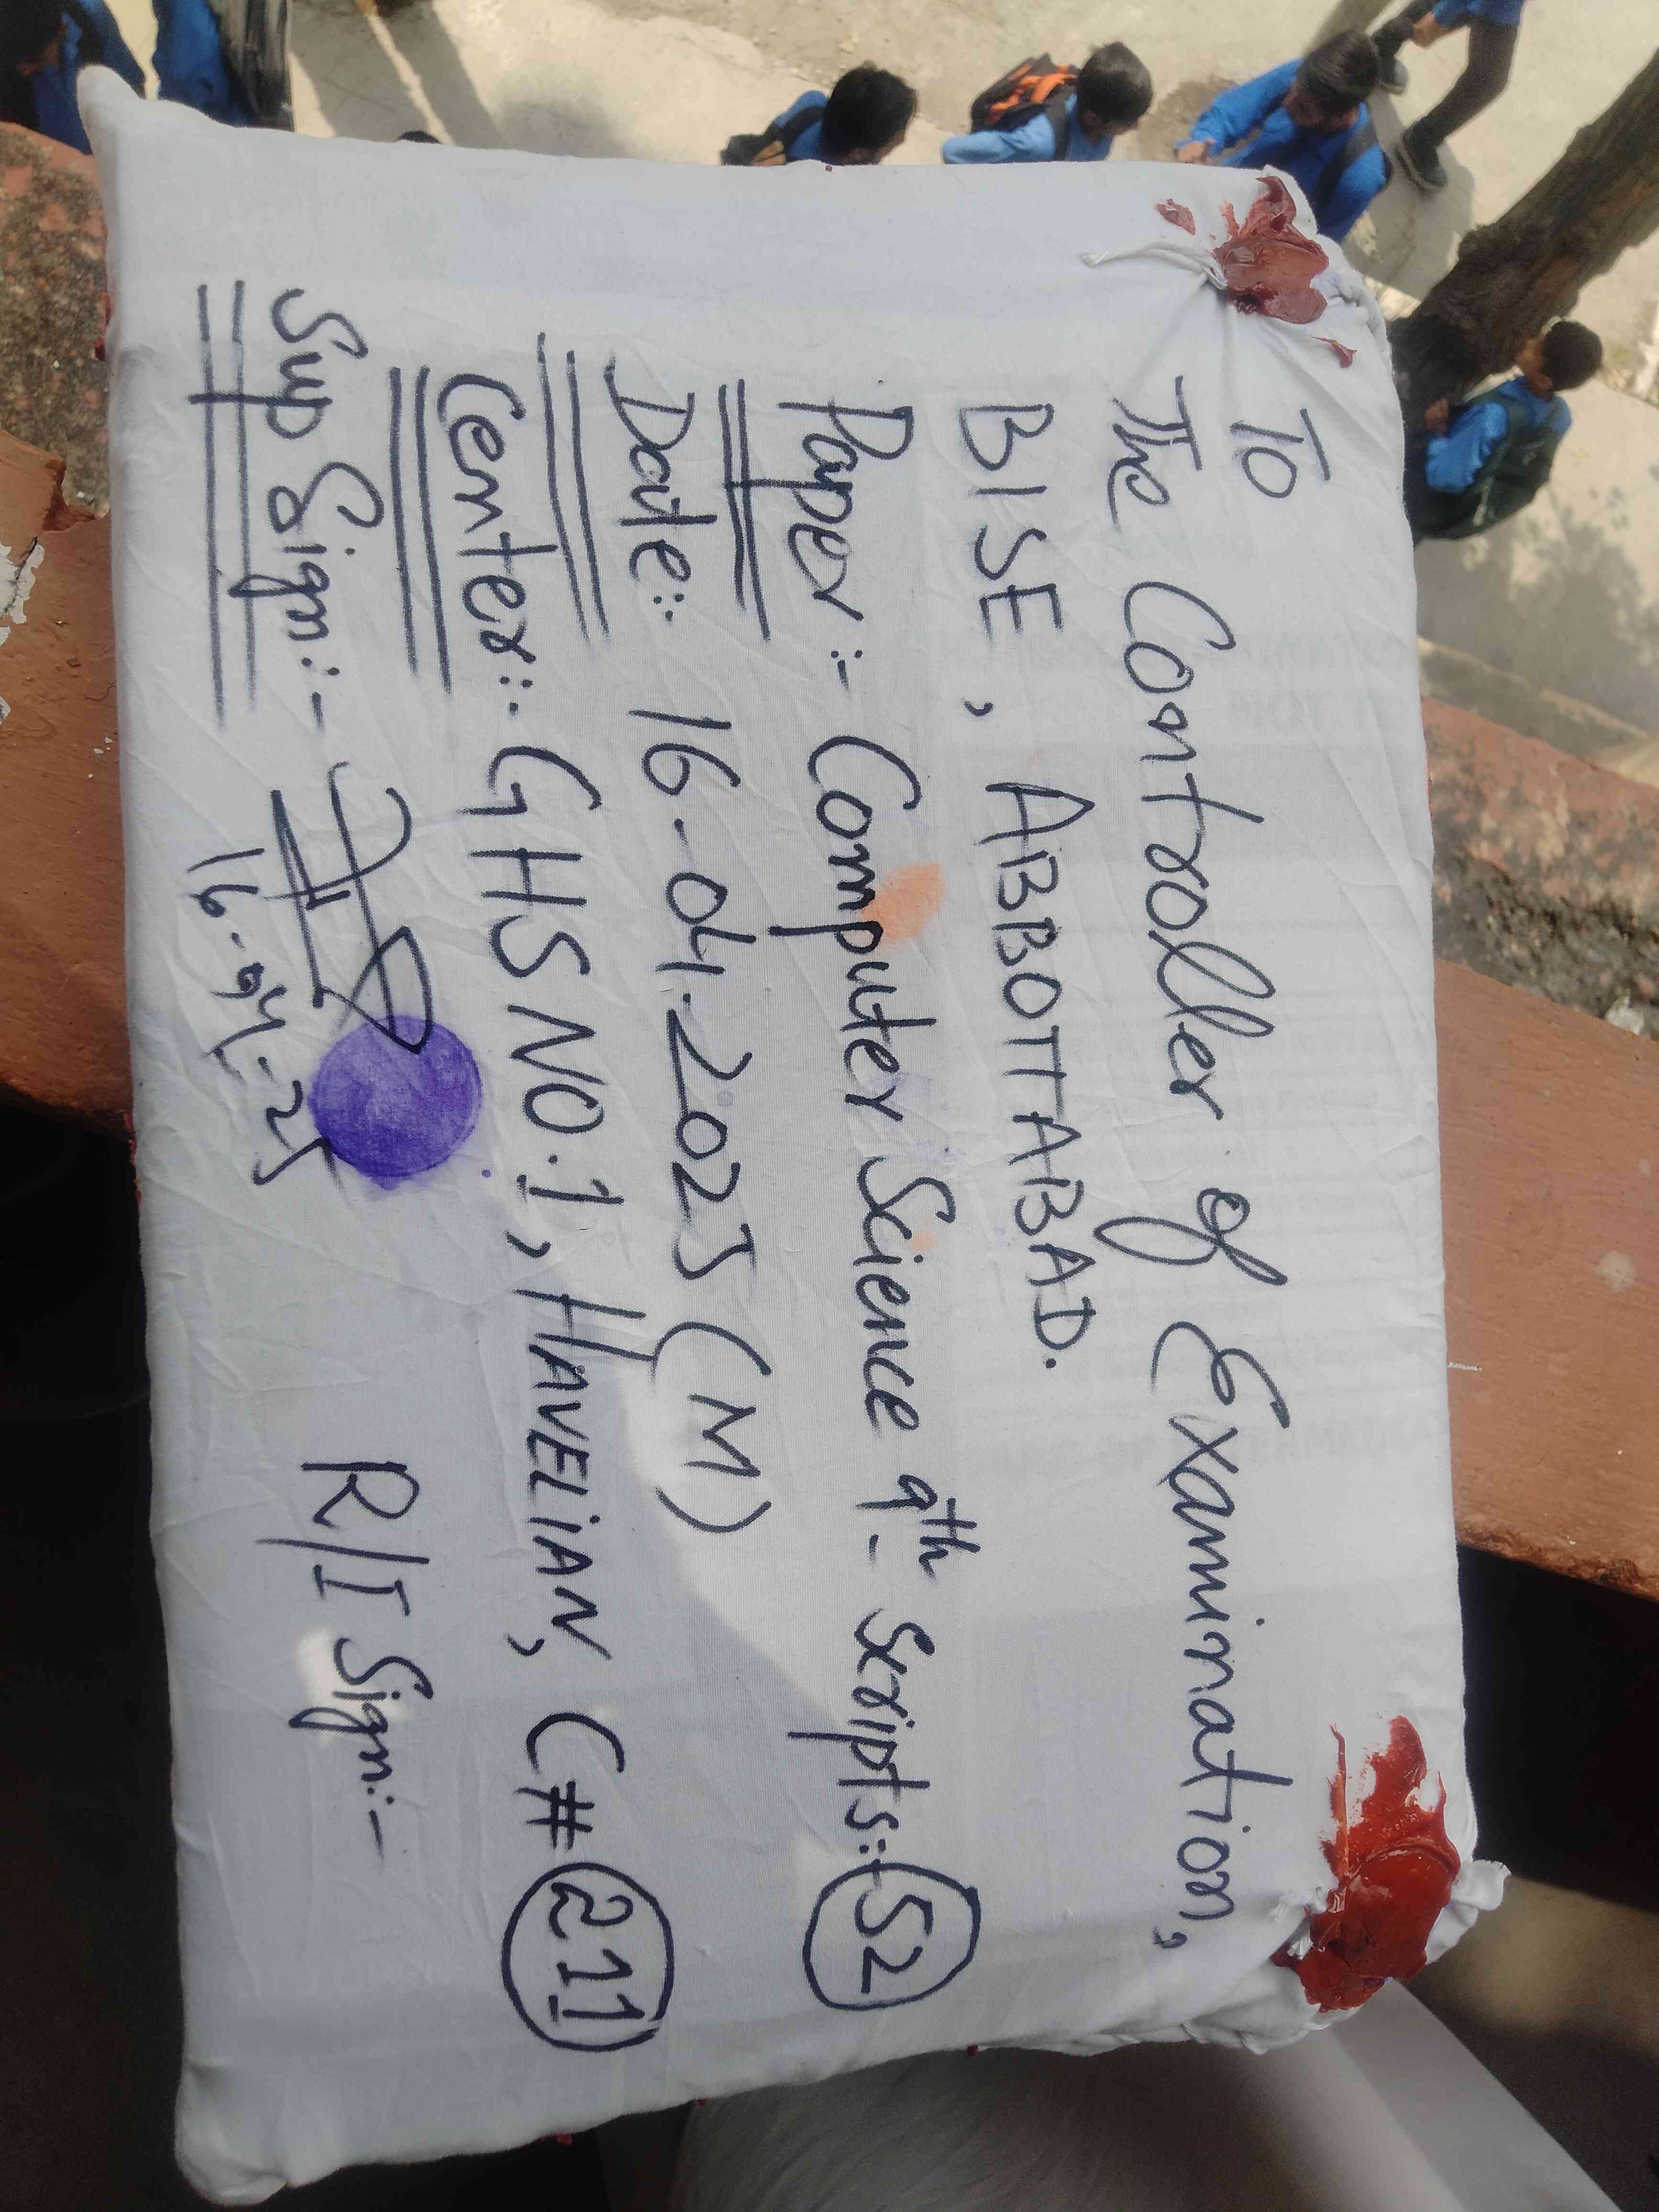 To
The Controller of Examination,
BISE, ABBOTTABAD.
Paper:- Computer Science 9th Scripts:- 52
Date:- 16-04-2025 (M)
Center:- GHS NO.1, HAVELIAN, C# 211
Sup Sign:- R/I Sign:-
16-04-25